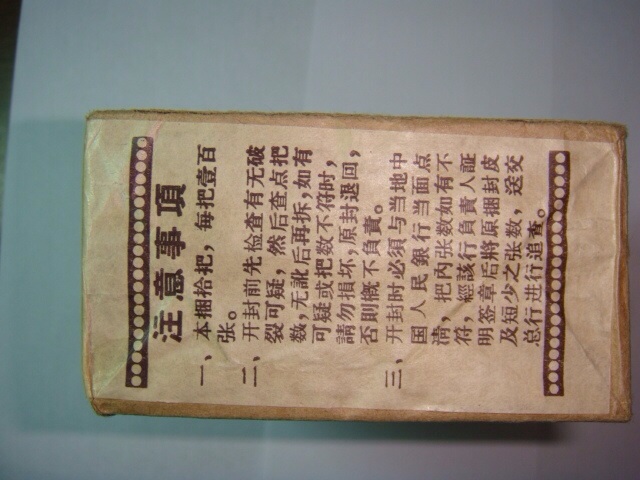 注意事項
一、本捆拾把，每把壹百
张。
二、开封前先检查有无破
裂可疑，然后查点把
数，无訛后再拆，如有
可疑或把数不符时，
請勿損坏，原封退回，
否則慨不負責。
三、开封时必須与当地中
国人民銀行当面点
清，把内张数如有不
符，經該行負責人証
明签章后將原捆封皮
及短少之张数，送交
总行进行追查。